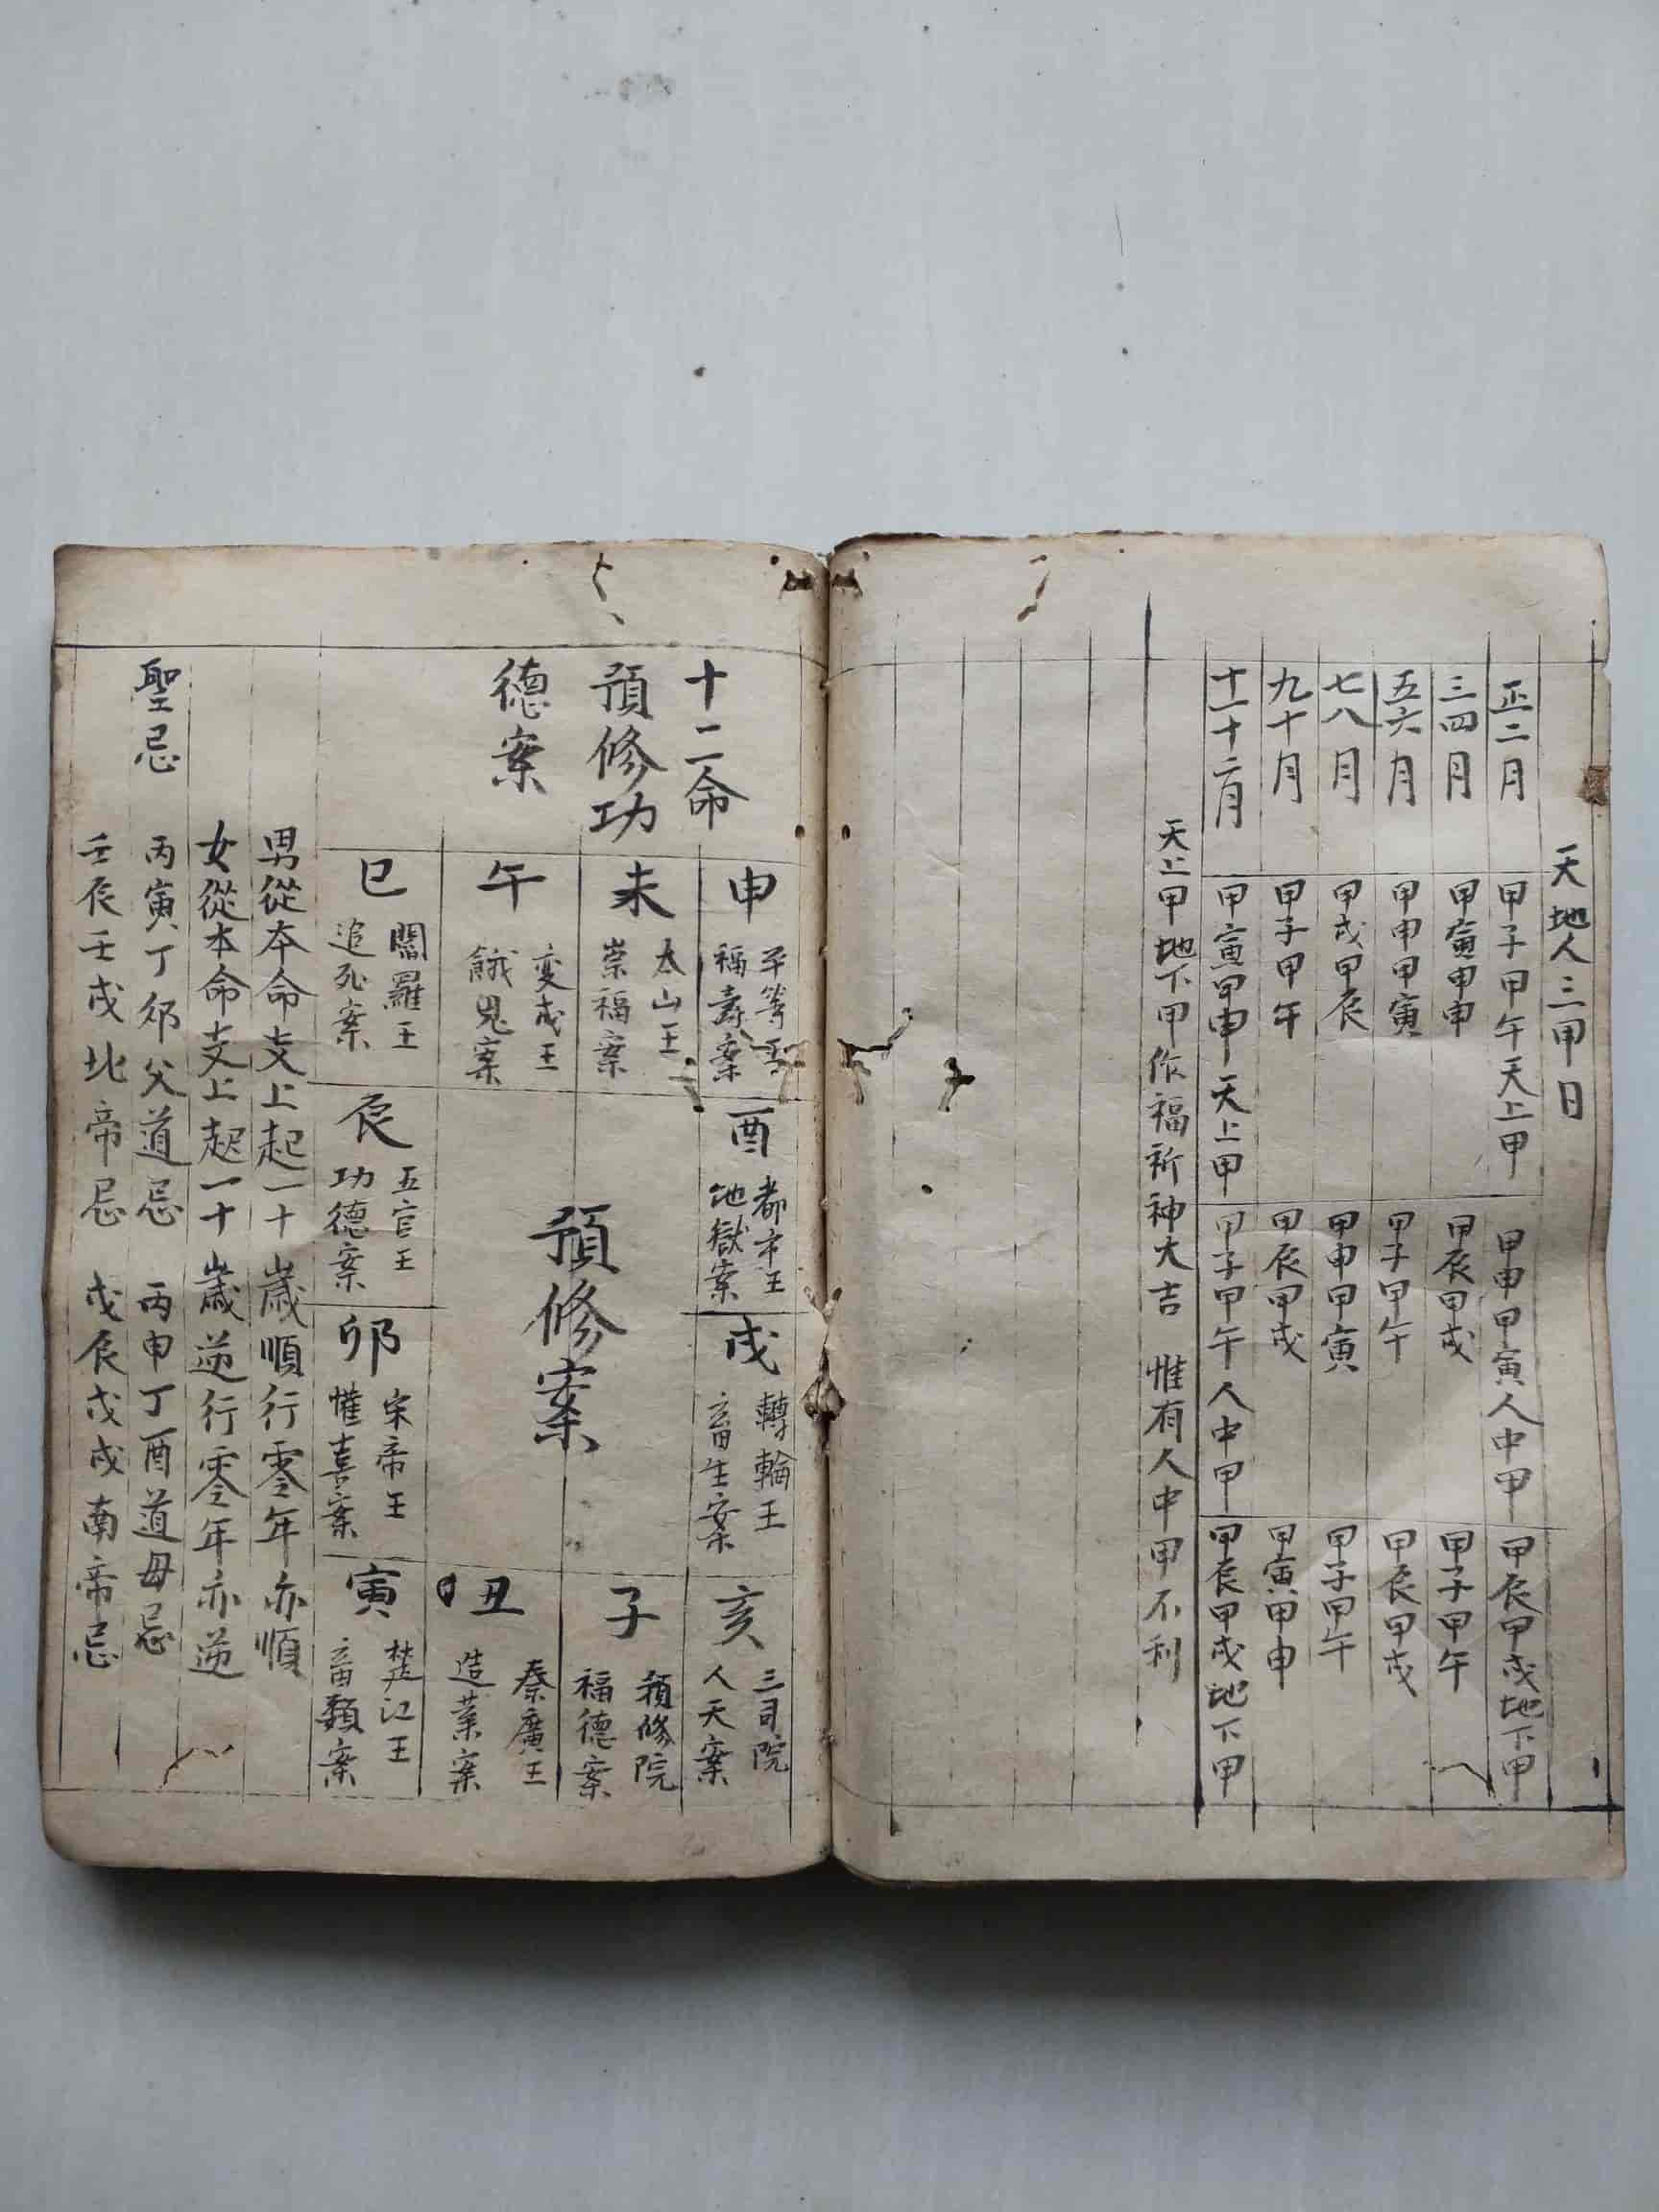 天地人三甲日
正二月 甲子甲午天上甲 甲申甲寅人中甲 甲辰甲戌地下甲
三四月 甲寅甲申 甲辰甲戌 甲子甲午
五六月 甲申甲寅 甲子甲午 甲辰甲戌
七八月 甲戌甲辰 甲申甲寅 甲子甲午
九十月 甲子甲午 甲辰甲戌 甲寅甲申
十一十二月 甲寅甲申天上甲 甲子甲午人中甲 甲辰甲戌地下甲
天上甲地下甲作福祈神大吉 惟有人中甲不利
十二命
預修功
德案
申
平等王
福壽案
未
太山王
崇福案
午
变成王
餓鬼案
巳
閻羅王
追死案
酉
都市王
地獄案
辰
五官王
功德案
預修案
戌
轉輪王
畜生案
卯
宋帝王
懽喜案
亥
三司院
人天案
子
預修院
福德案
丑
秦廣王
造業案
寅
楚江王
畜類案
男從本命支上起一十歲順行零年亦順
女從本命支上起一十歲逆行零年亦逆
聖忌 丙寅丁卯父道忌 丙申丁酉道母忌
壬辰壬戌北帝忌 戊辰戊戌南帝忌